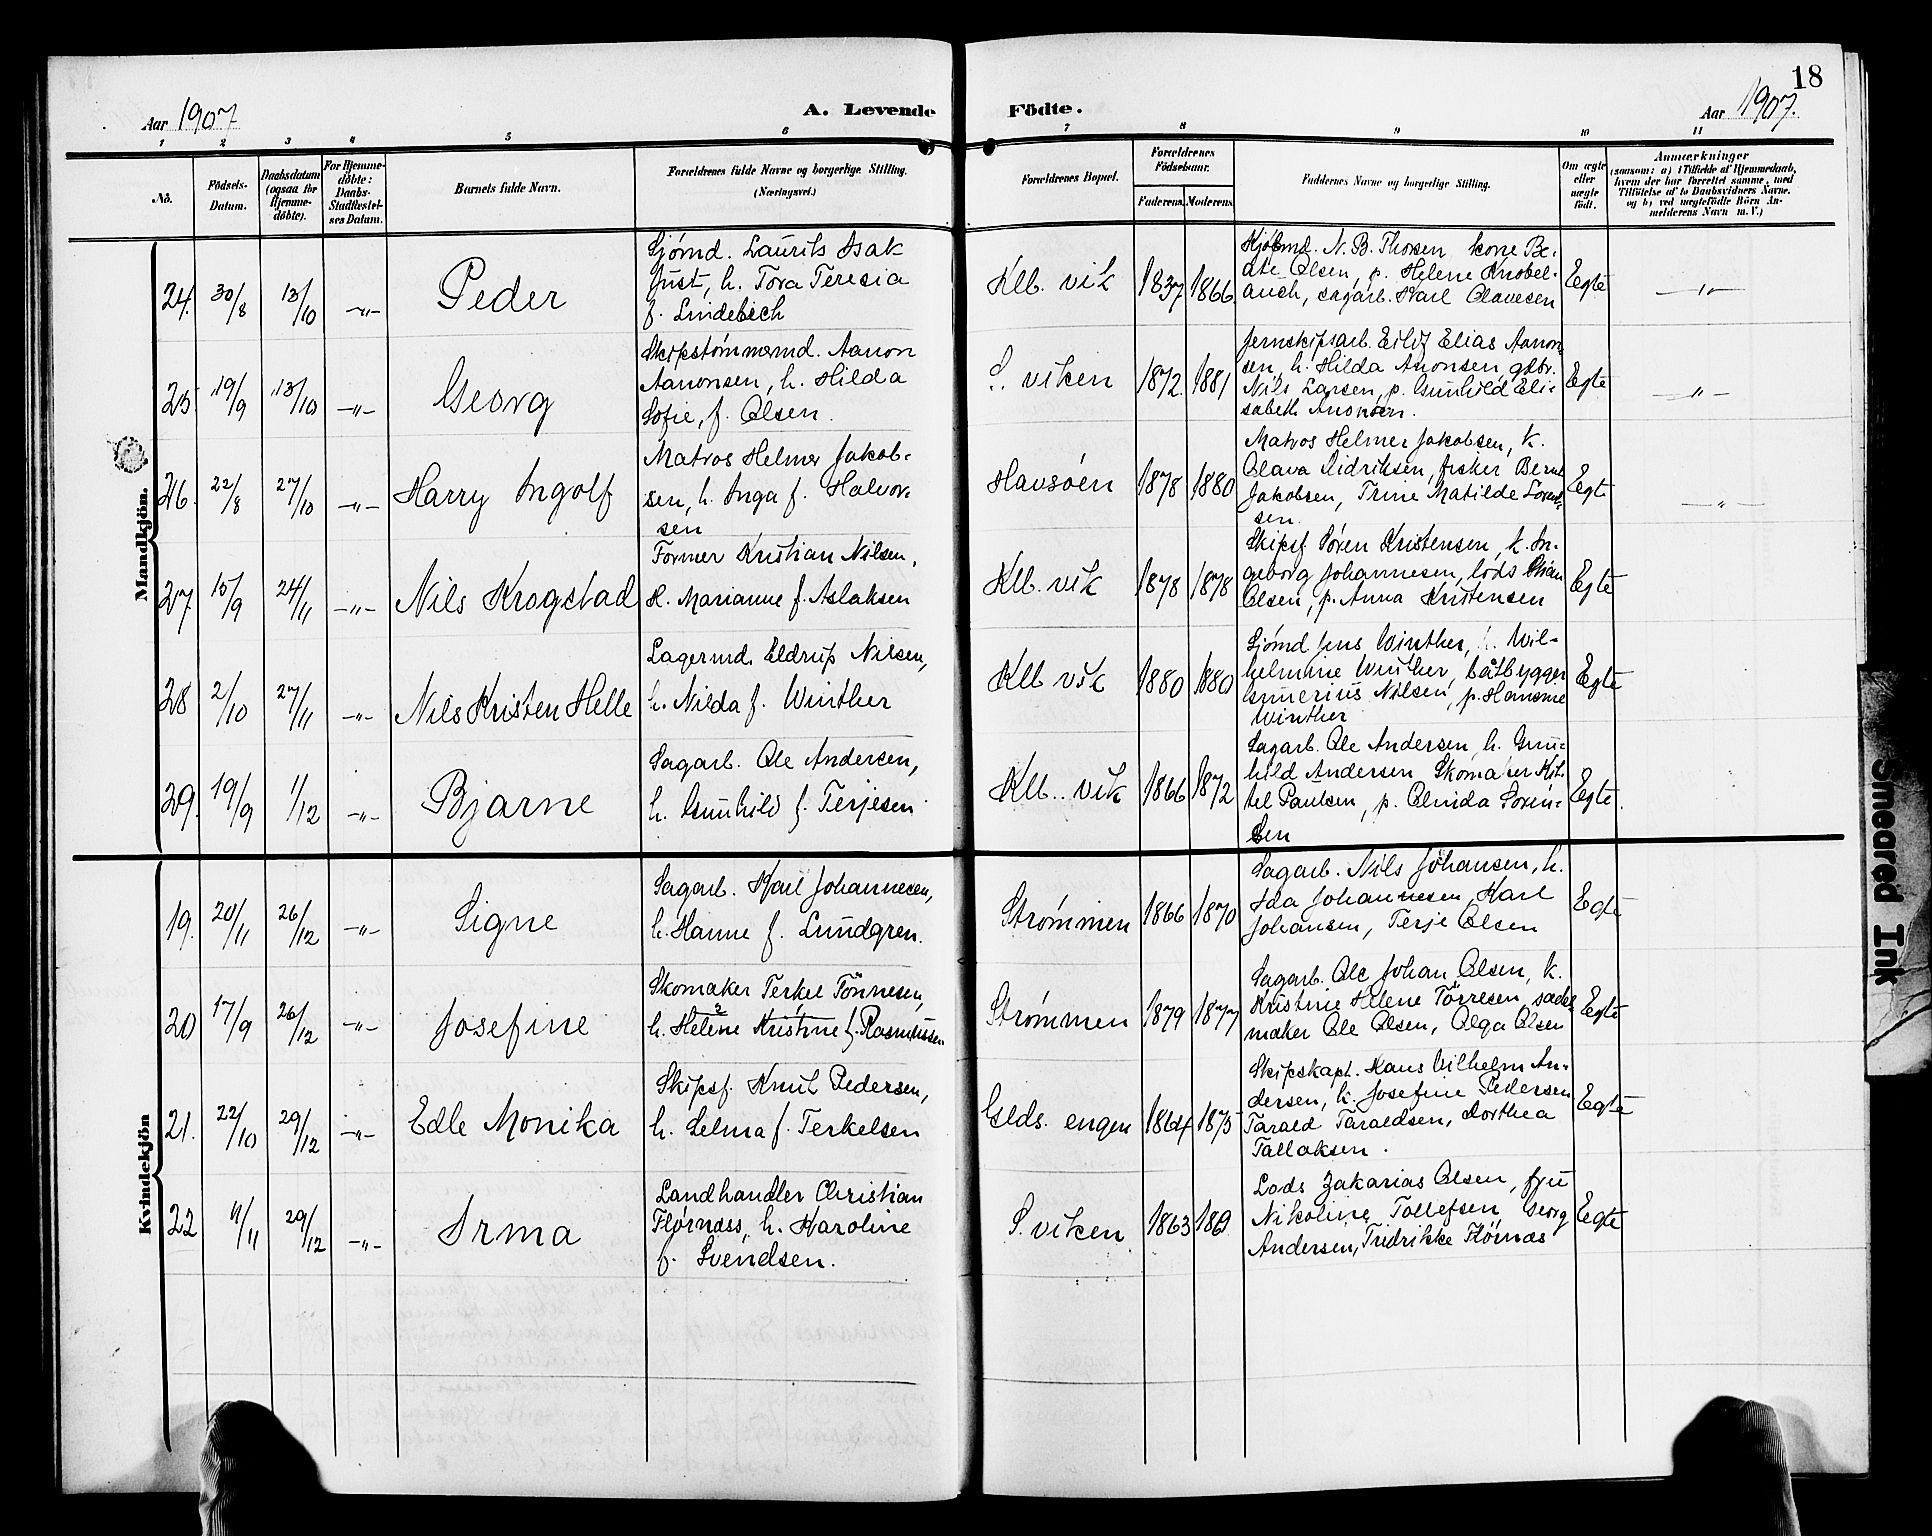 18
Aar 1907
A. Levende Födte.
Aar 1907.
1 2 3 4 5 6 7 8 9 10 11
No.
Födsels-
Datum.
Daabsdatum
(ogsaa for
Hjemme-
döbte).
For Hjemme-
döbte:
Daabs-
Stadfæstel-
ses Datum.
Barnets fulde Navn.
Forældrenes fulde Navne og borgerlige Stilling.
(Næringsvei.)
Forældrenes Bopæl.
Forældrenes
Födselsaar.
Faderens. Moderens.
Faddernes Navne og borgerlige Stilling.
Om ægte
eller
uægte
født.
Anmærkninger
(saasom: a) i Tilfælde af Hjemmedaab,
hvem der har forrettet samme, med
Tilföielse af to Daabsvidners Navne.
og b) ved uægtefödte Börn An-
melderens Navn m. V.)
Mandkjön.
24. 30/8 13/10 -"- Peder
Sjömd. Laurits Isak
Just, h. Tora Teresia
f. Lindebich
Klb. vik 1837 1866.
N. B. Thorsen kone Be-
ate Olsen, p. Helene Knobel-
auch, sagarb. Karl Olavesen
Egte -"-
25 19/9 13/10 -"- Georg
Skipstømmermd. Aanon
Aanonsen, h. Hilda
Sofie, f. Olsen.
S. viken 1872. 1881
Jernskipsarb. Eilif Elias Aanon-
sen, h. Hilda Anonsen, gbr.
Nils Larsen, p. Gunhild Eli-
sabeth Anonsen.
Egte -"-
26. 22/8 27/10 -"- Harry Ingolf
Matros Helmer Jakob-
sen, h. Inga f. Halvor-
sen
Havsøen 1878 1880
Matros Helmer Jakobsen, k.
Olava Didriksen, fisker Bernt
Jakobsen, Trine Matilde Lorent-
sen.
Egte -"-
27 15/9 24/11 -"- Nils Krogstad
Former Kristian Nilsen,
H. Marianne f. Aslaksen
Klb. vik 1878 1878
Skipsf. Sören Kristensen, k. In-
geborg Johannesen, lods
Olsen, p. Anna Kristensen
Egte
28 2/10 27/11 -"- Nils Kristen Helle
Lagermd. Eldrup Nilsen,
h. Nilda f. Winther
Klb vik 1880 1880
Sjömd Jens Winther, h. Wil-
helmine Winther, båtbygger
Nilsen, p. Hansine
Winther
Egte
29. 19/9 1/12 -"- Bjarne
Sagarb. Ole Andersen,
h. Gunhild f. Terjesen
Klb. vik 1866 1872
Sagarb. Ole Andersen, h. Gun-
hild Andersen Skomaker Kit-
tel Paulsen, p. Olinda Sörin-
sen
Egte.
Kvindekjön
19. 20/11 26/12 -"- Signe
Sagarb. Karl Johannesen,
h. Hanne f. Lundgren.
Strømmen 1866 1870
Sagarb. Nils Johansen, h.
Ida Johannesen, Karl
Johansen, Terje Olsen
Egte
20 17/9 26/12 -"- Josefine
Skomaker Terkel Tönnesen,
h. Helene Kristine f. Rasmussen
Strømmen 1879 1877
Sagarb. Ole Johan Olsen, k.
Kristine Helene Törresen, sadel-
maker Ole Olsen, Olga Olsen
Egte
21. 22/10 29/12 -"- Edle Monika
Skipsf. Knut Pedersen,
h. Selma f. Terkelsen
Glds. engen 1864 1875
Skipskapt. Hans Vilhelm An-
dersen, h. Josefine Pedersen
Tarald Taraldsen, Dorthea
Tallaksen.
Egte
22 4/11 29/12 -"- Irma
Landhandler Christian
Flørnæss, h. Karoline
f. Svendsen.
S. viken 1863
Lods Zakarias Olsen, frü
Nikoline Tollefsen Georg
Andersen, Fredrikke Flörnæs
Egte
Smeared Ink